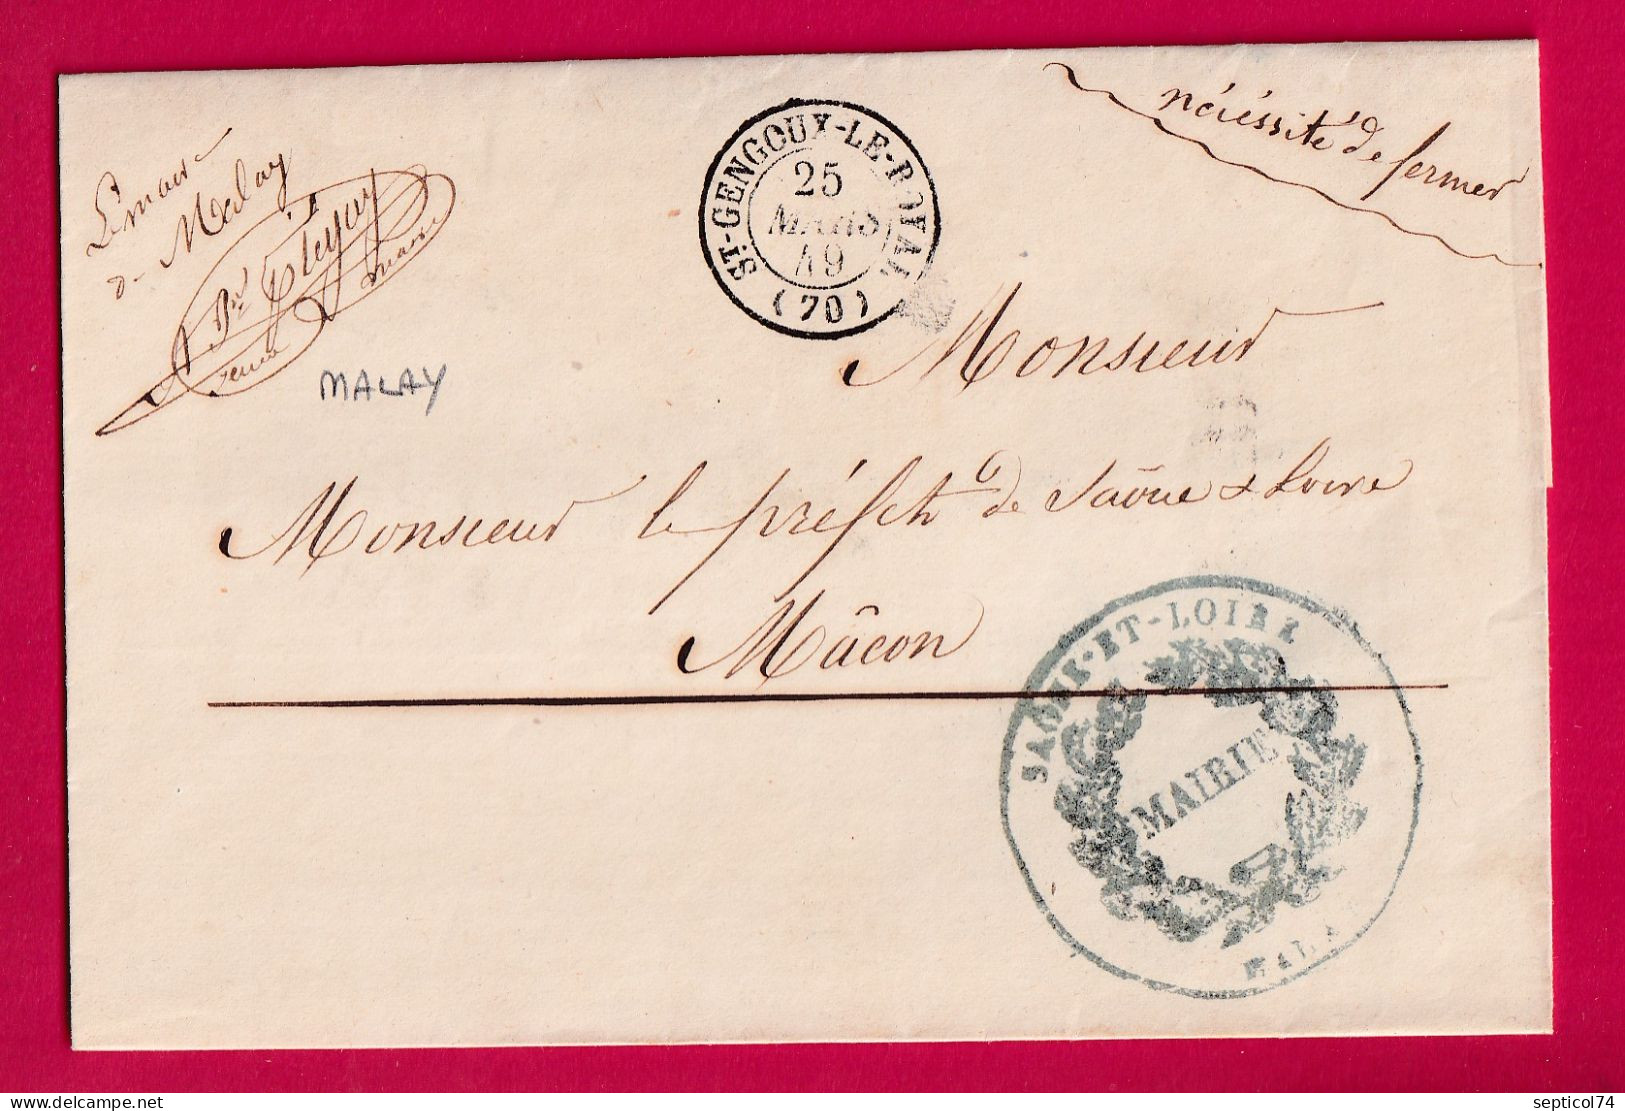 Le maire
de Malay
maire
MALAY
ST-GENGOUX-LE-ROYAL
25
MARS
49
(70)
nécéssité de fermer
Monsieur
Monsieur le préfet de Saône & Loire
Mâcon
SAONE-ET-LOIRE
MAIRIE
MALAY
septicol74
delcampe.net